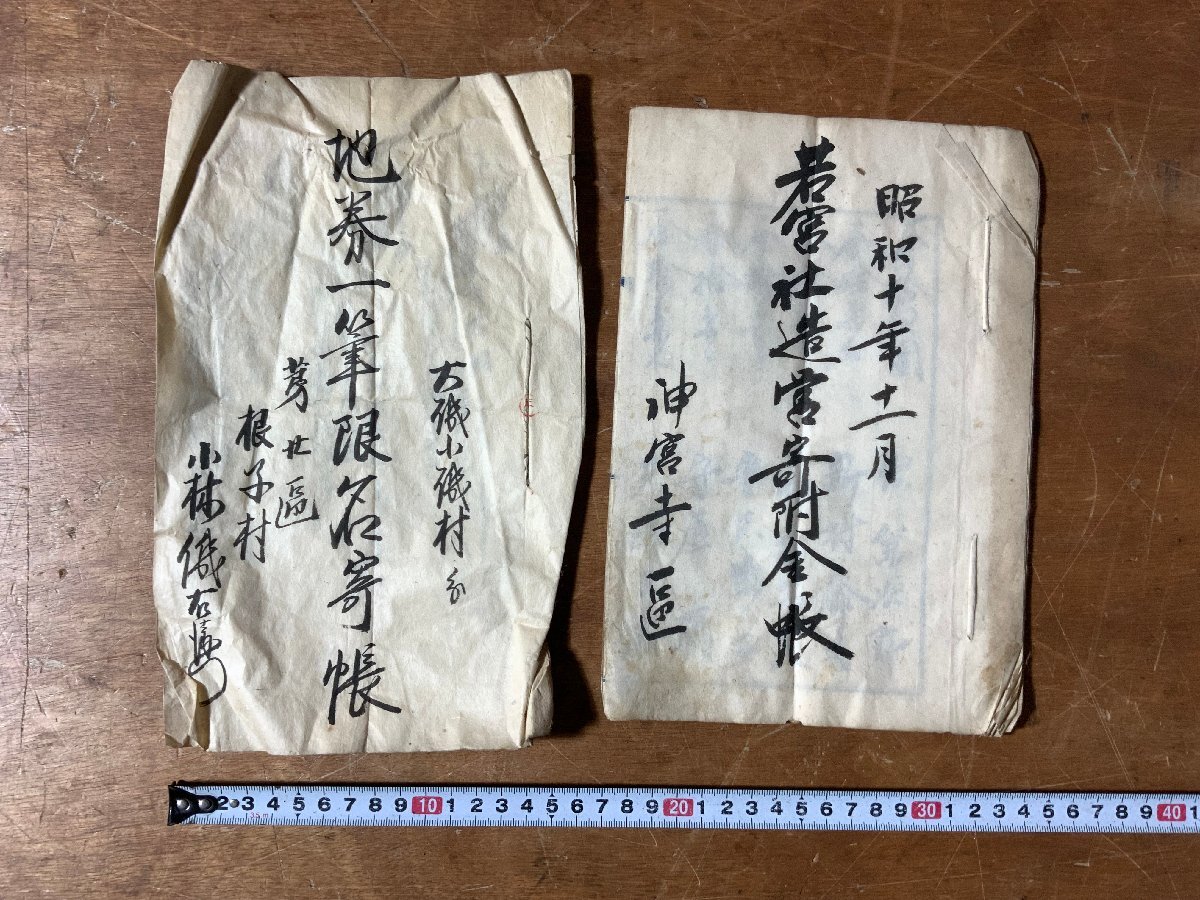 大磯小磯村分
地券一筆限名寄帳
第廿區
根子村
小林儀右衛門
昭和十年十一月
若宮社造営寄附金帳
神宮寺區
2 3 4 5 6 7 8 9 10 1 2 3 4 5 6 7 8 9 20 1 2 3 4 5 6 7 8 9 30 1 2 3 4 5 6 7 8 9 40 1